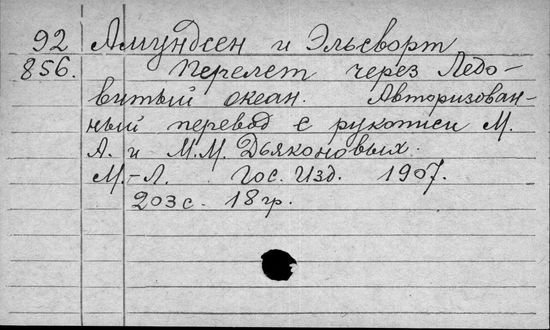 92 Амундсен и Эльсворт
856. Перелет через Ледо-
витый океан. Авторизован-
ный перевод с рукописи М.
А. и М.М. Дьяконовых.
М.-Л. Гос. Изд. 1907.
203 с. 18 гр.